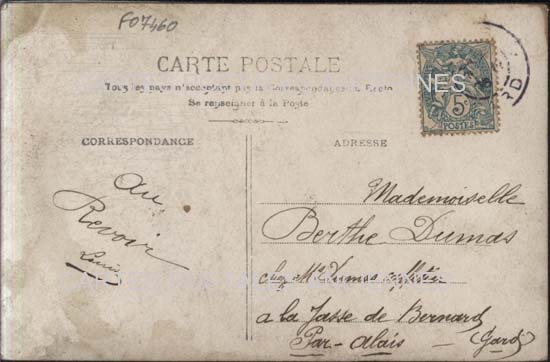 F07460
CARTE POSTALE
Tous les pays n'acceptent pas la Correspondance au Recto
Se renseigner à la Poste
5c
POSTES
RD
CORRESPONDANCE
ADRESSE
Au
Revoir
Louis
Mademoiselle
Berthe Dumas
chez Mr Dumas
a la Jasse de Bernard
Par-Alais - (Gard)